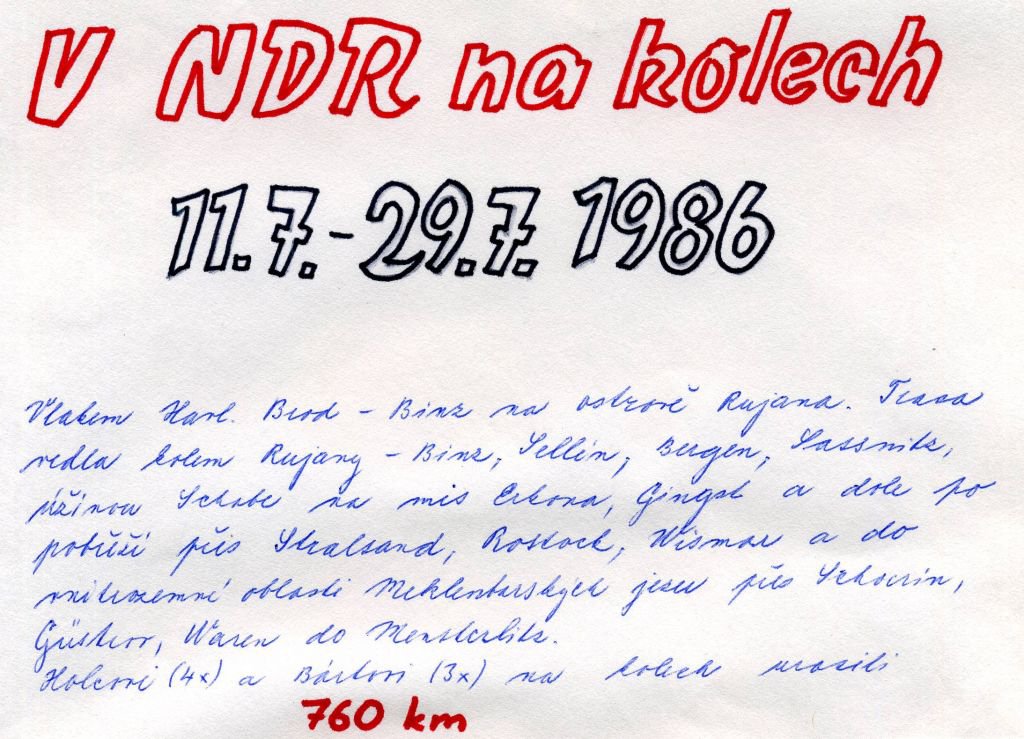 V NDR na kolech
11.7.-29.7. 1986
Vlakem Havl. Brod - Binz na ostrově Rujana. Trasa
vedla kolem Rujany - Binz, Sellin, Bergen, Sassnitz,
úžinou Schabe na mis Arkona, Gingst a dále po
pobřeží přes Stralsund, Rostock, Wismar a do
vnitrozemní oblasti Meklenburských jezer přes Schwerin,
Güstrow, Waren do Neusterlitz.
Holcovi (4x) a Bártovi (3x) na kolech urazili
760 km